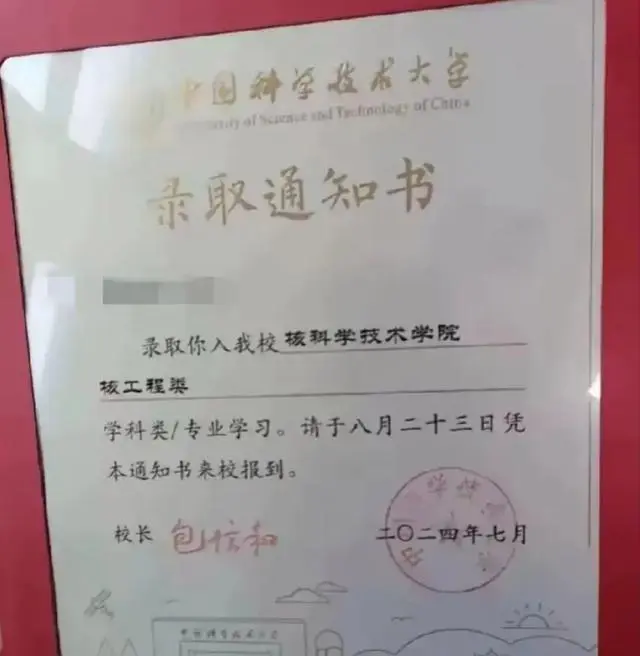 中国科学技术大学
University of Science and Technology of China
录取通知书
录取你入我校 核科学技术学院
核工程类
学科类/专业学习。请于八月二十三日凭
本通知书来校报到。
校长 包信和 二〇二四年七月
中国科学技术大学